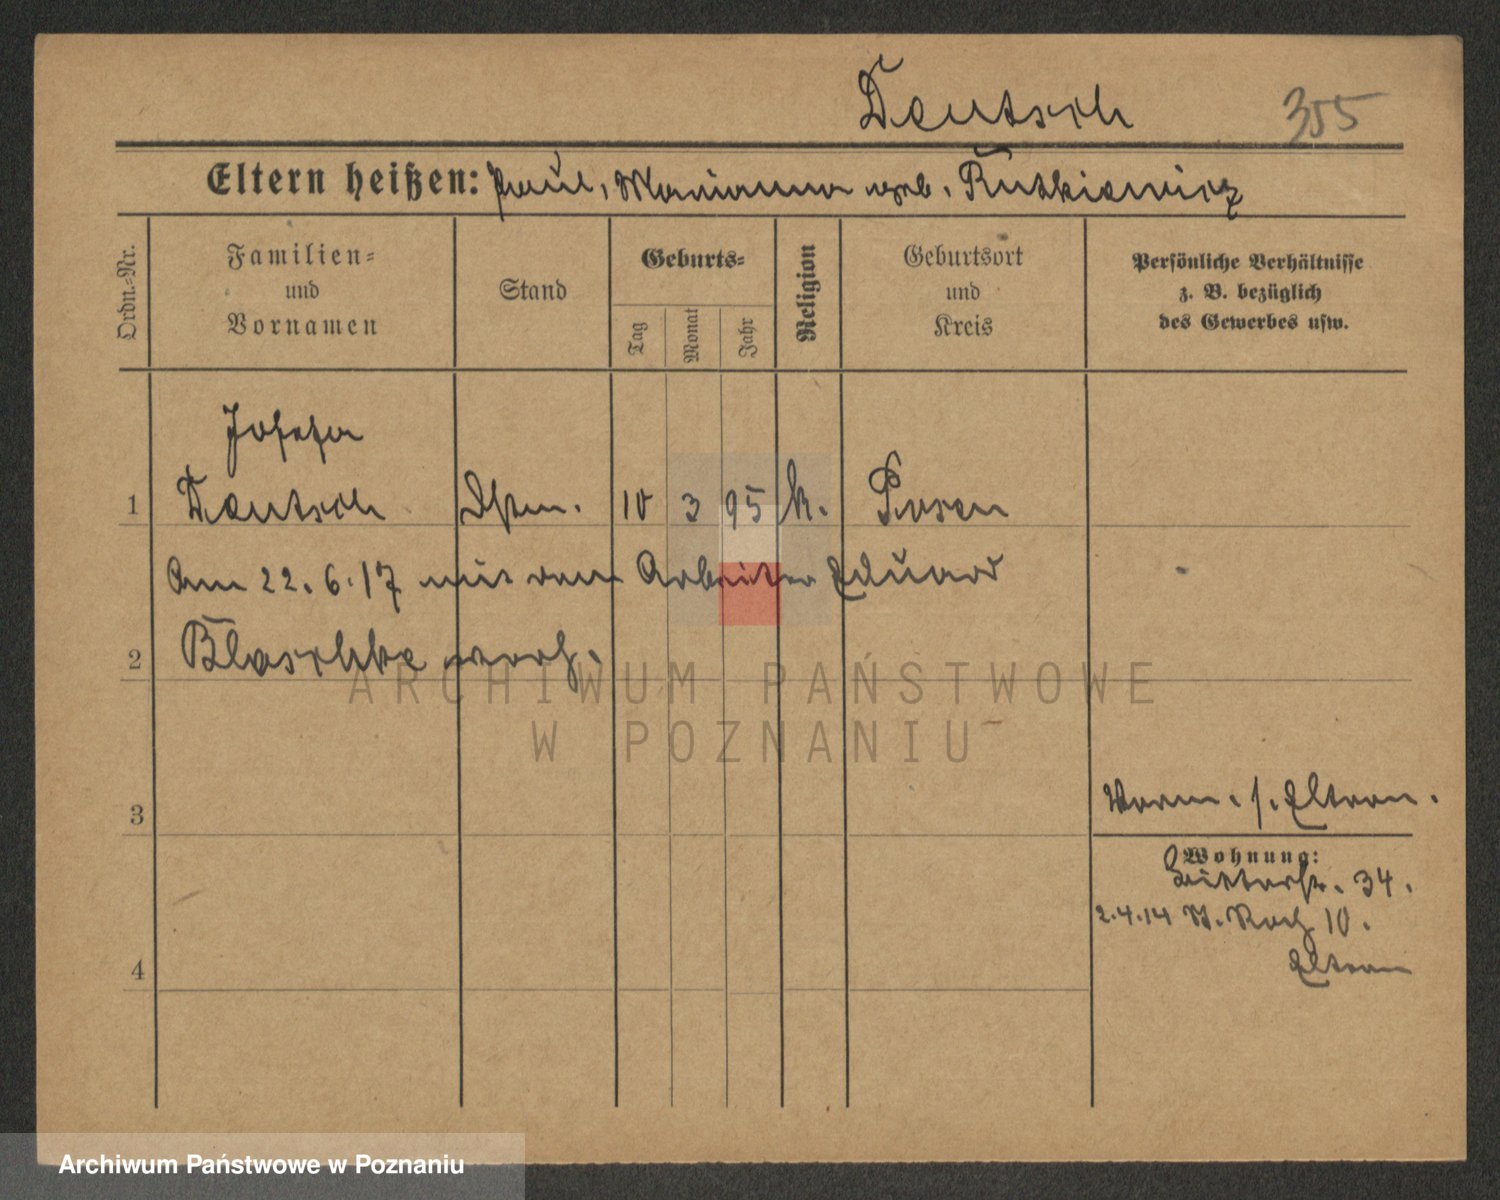 Deutsch 355
Eltern heißen: Paul, Marianna geb. Rutkiewicz
Ordn.-Nr.
Familien-
und
Vornamen
Stand
Geburts-
Tag
Monat
Jahr
Religion
Geburtsort
und
Kreis
Persönliche Verhältnisse
z. B. bezüglich
des Gewerbes usw.
Josefa
1 Deutsch 10 3 95 k. Posen
Am 22.6.17 mit dem Arbeiter Eduard
2 Blaschke verh.
3
Verm. s. Eltern.
Wohnung:
34.
2.4.14 10.
4
Eltern
ARCHIWUM PAŃSTWOWE
W POZNANIU
Archiwum Państwowe w Poznaniu